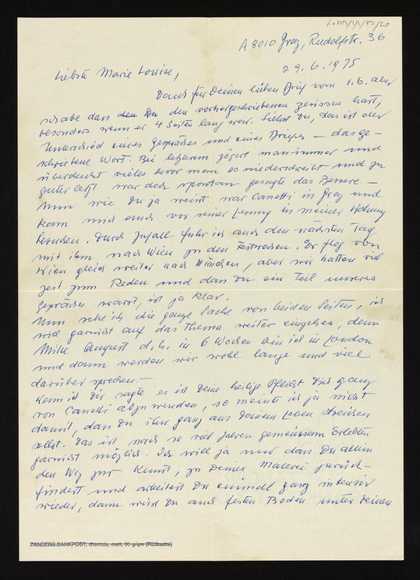 A 8010 Graz, Rudolfstr. 36
29.6.1975
Liebste Marie Louise,
Dank für Deinen lieben Brief vom 1.6. aber
schade dass den Du den vorhergeschriebenen zerissen hast,
besonders wenn er 4 Seiten lang war. Siehst Du, das ist der
Unterschied eines Gespräches und eines Briefes – das ge-
schriebene Wort. Bei letzterem zögert man immer und
überdenkt vieles bevor man es niederschreibt und zu
guter letzt war doch spontan gesagte das Bessere –
Nun wie Du ja weisst war Canetti in Graz und
kam und auch vor seiner Lesung in meiner Wohnung
. Durch Zufall fuhr ich auch den nächsten Tag
mit ihm nach Wien zu den Festwochen. Er flog von
Wien gleich weiter nach München, aber wir hatten viel
Zeit zum Reden und dass Du ein Teil unserer
Gespräche warst, ist ja klar.
Nun sehe ich die ganze Sache von beiden Seiten, ich
will garnicht auf das Thema weiter eingehen, denn
Mitte August d.h. in 6 Wochen bin ich in London
und dann werden wir wohl lange und viel
darüber sprechen –
Wenn ich Dir sagte es ist Deine heilige Pflicht Dich ganz
von Canetti abzuwenden, so meinte ich ja nicht
damit, dass Du ihn ganz aus Deinem Leben streichen
sollst. Das ist nach so viel Jahren gemeinsamen Erlebens
garnicht möglich. Ich will ja nur dass Du allein
den Weg zur Kunst, zu Deiner Malerei zurück-
findest und arbeitest Du einmal ganz intensiv
wieder, dann wirst Du auch festen Boden unter Deinen